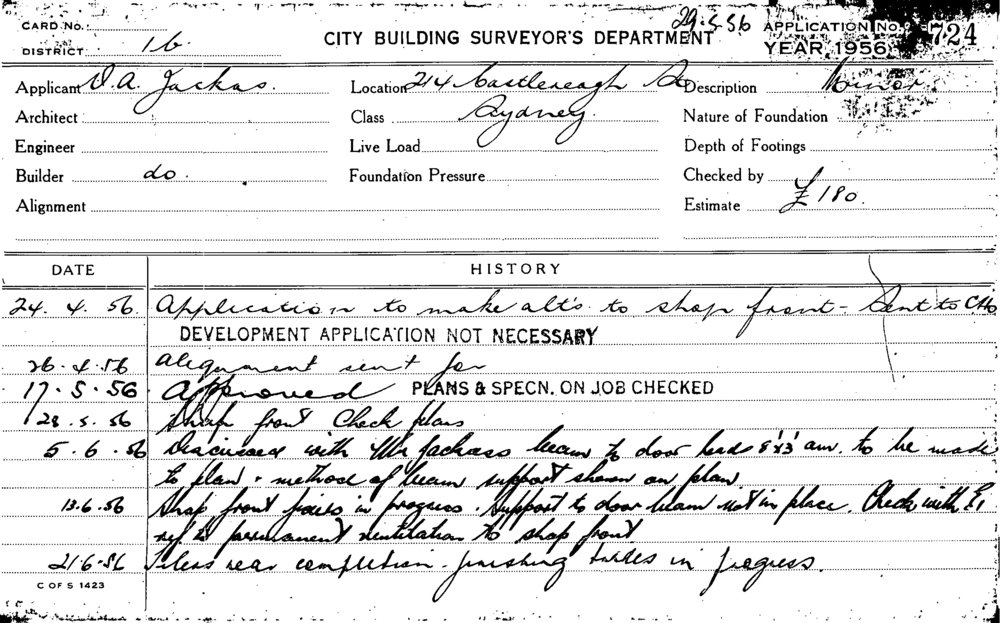 CARD No.
DISTRICT 16
CITY BUILDING SURVEYOR'S DEPARTMENT
29.5.56
APPLICATION No. 724
YEAR 1956
Applicant D. A. Jackas.
Location 214 Castlereagh St
Description Minor
Architect
Class Sydney.
Nature of Foundation
Engineer
Live Load
Depth of Footings
Builder do.
Foundation Pressure
Checked by
Alignment
Estimate £180.
DATE
HISTORY
24. 4. 56. Application to make alt's. to shop front - Sent to
DEVELOPMENT APPLICATION NOT NECESSARY
26.4.56 alignment sent for
17.5.56 Approved PLANS & SPECN. ON JOB CHECKED
28.5.56 Shop front Check plans
5.6.56 Discussed with Mr Jackass beam to door to be made
to plan. method of beam support shown on plan
13.6.56 Shop front in progress. Support to door beam not in place. Check with
permanent ventilation to shop front
21.6.56 near completion. finishing in progress.
C OF S 1423